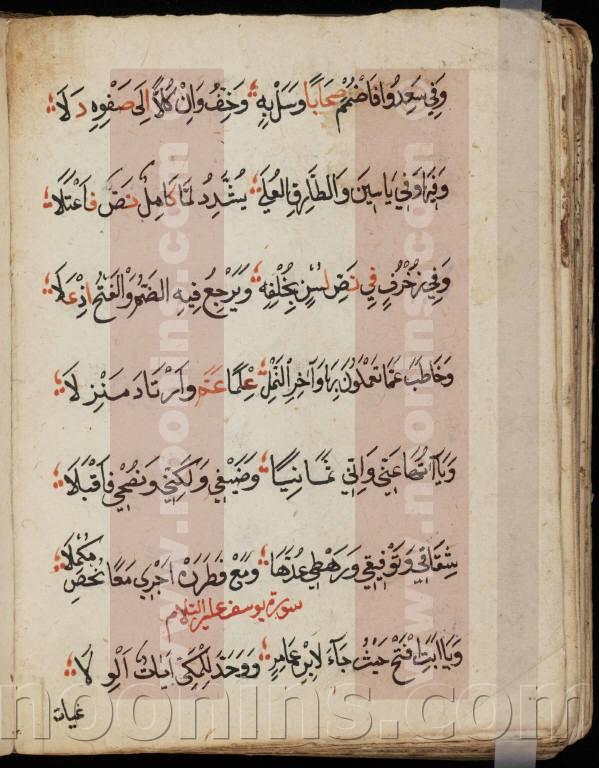 وَفِي سَعِدُوا فَاضْمُمْ صِحَابًا وَسَلْ بِهِ وَخِفُّ وَاِنْ كُلًّا اِلَى صَفْوِهِ دَلَا
وَفِيهَا وَفِي يَاسِينَ وَالطَّارِقِ الْعُلَى يُشَدِّدُ لَمَّا كَامِلٌ نَصَّ فَاعْتَلَا
وَفِي زُخْرُفٍ فِي نَصِّ لُسْنٍ بِخُلْفِهِ وَيَرْجِعُ فِيهِ الضَّمُّ وَالْفَتْحُ اِذْ عَلَا
وَخَاطَبَ عَمَّا تَعْمَلُونَ بِهَا وَآخِرَ النَّمْلِ عِلْمًا عَمَّ وَارْتَادَ مَنْزِلَا
وَيَاآتُهَا عَنِّي وَاِنِّي ثَمَانِيًا وَضَيْفِي وَلَكِنِّي وَنُصْحِي فَاقْبَلَا
شِقَاقِي وَتَوْفِيقِي وَرَهْطِي عُدَّهَا وَمَعْ فَطَرَنْ اَجْرِي مَعًا تُحْصِ مُكْمَلَا
سورة يوسف عليه السلام
وَيَا اَبَتِ افْتَحْ حَيْثُ جَآءَ لِابْنِ عَامِرٍ وَوَحِّدْ لِلْمَكِّي آيَاتُ الْوِلَا
غيات
noonins.com